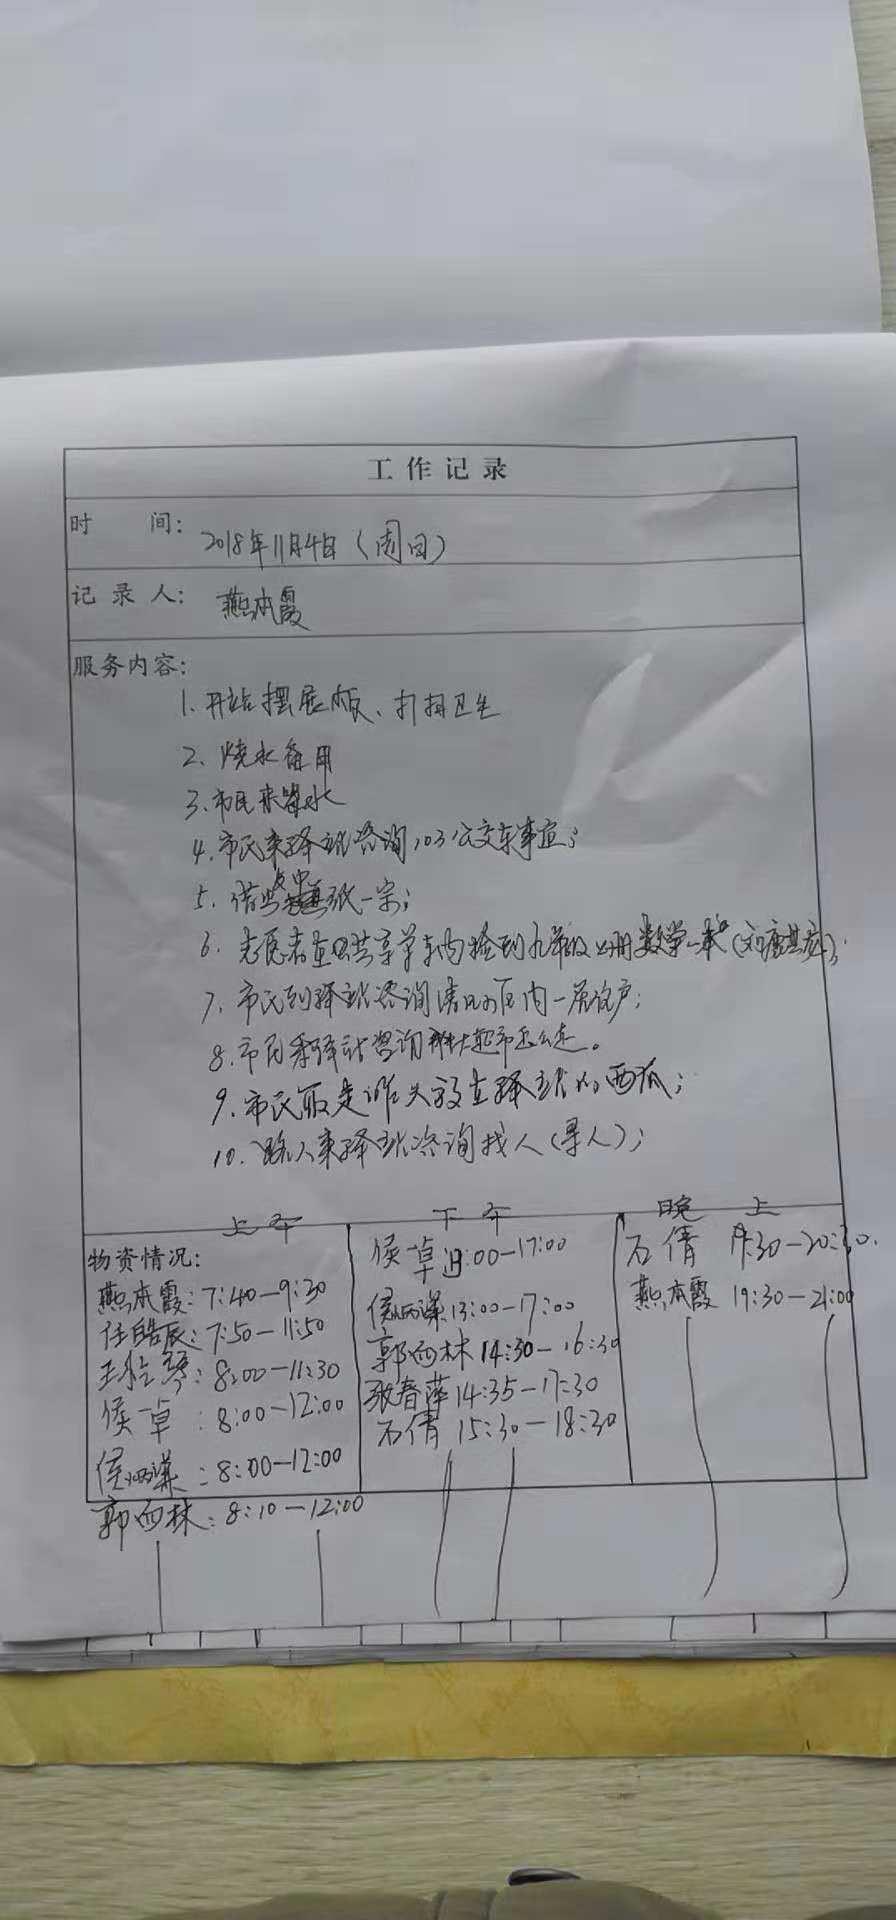 工作记录
时 间: 2018年11月4日(周日)
记录人: 燕本霞
服务内容:
1.开站摆展板、打扫卫生
2.烧水备用
3.市民来 水
4.市民来驿站咨询103公交车事宜;
5.借 纸一宗;
6.志愿者在 共享单车内捡到九年级上册数学一本( );
7.市民到驿站咨询 小区内一居住户;
8.市民来驿站咨询 超市怎么走。
9.市民取走昨天放在驿站的西瓜;
10.路人来驿站咨询找人(寻人);
上午 下午 晚上
物资情况:
燕本霞:7:40—9:30
任皓辰:7:50—11:50
王 琴:8:00—11:30
侯一卓:8:00—12:00
侯炳谦:8:00—12:00
郭西林:8:10—12:00
侯一卓 :00—17:00
侯炳谦13:00—17:00
郭西林14:30—16:30
张春萍14:35—17:30
石倩 15:30—18:30
石倩 :30—20:30.
燕本霞 19:30—21:00